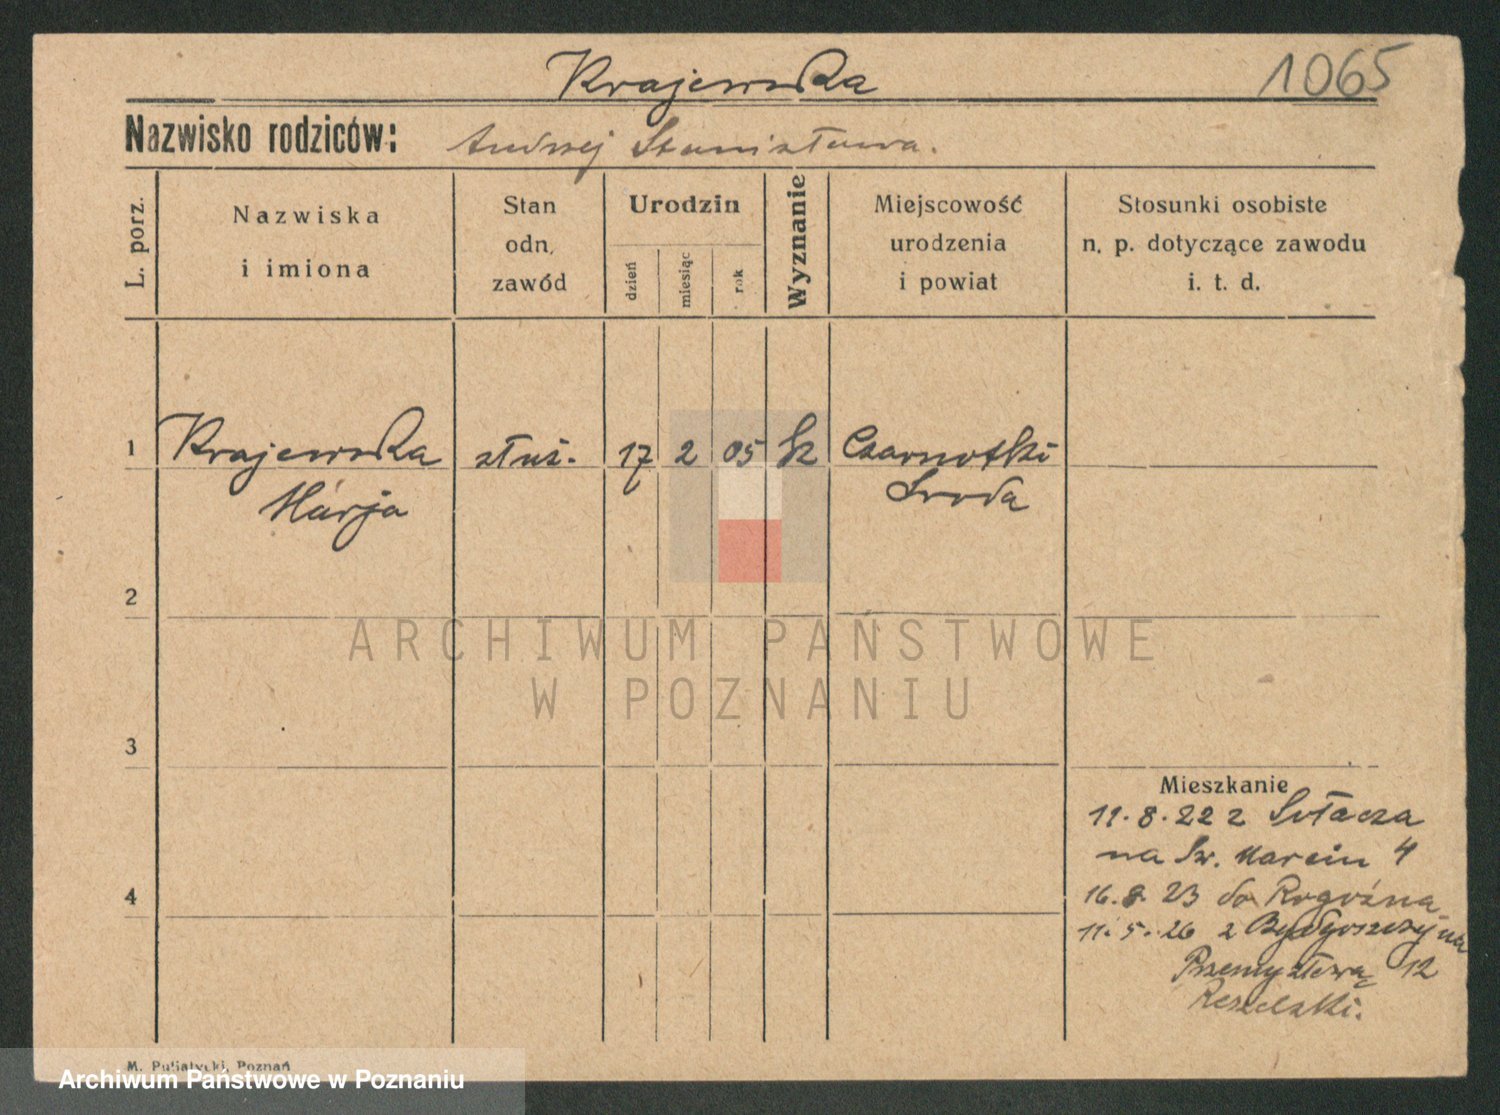 Krajewska
1065
Nazwisko rodziców: Andrzej Stanisława.
L. porz.
Nazwiska
i imiona
Stan
odn.
zawód
Urodzin
dzień
miesiąc
rok
Wyznanie
Miejscowość
urodzenia
i powiat
Stosunki osobiste
n. p. dotyczące zawodu
i. t. d.
1 Krajewska służ. 17 2 05 Czarnotki
Márja Środa
2
ARCHIWUM PAŃSTWOWE
W POZNANIU
3
Mieszkanie
11.8.22 z Sołacza
na Św. Marcin 4
4
16.8.23 do Rogoźna
11.5.26 z Bydgoszczy na
Przemysłową 12
M. Putiatycki, Poznań
Archiwum Państwowe w Poznaniu